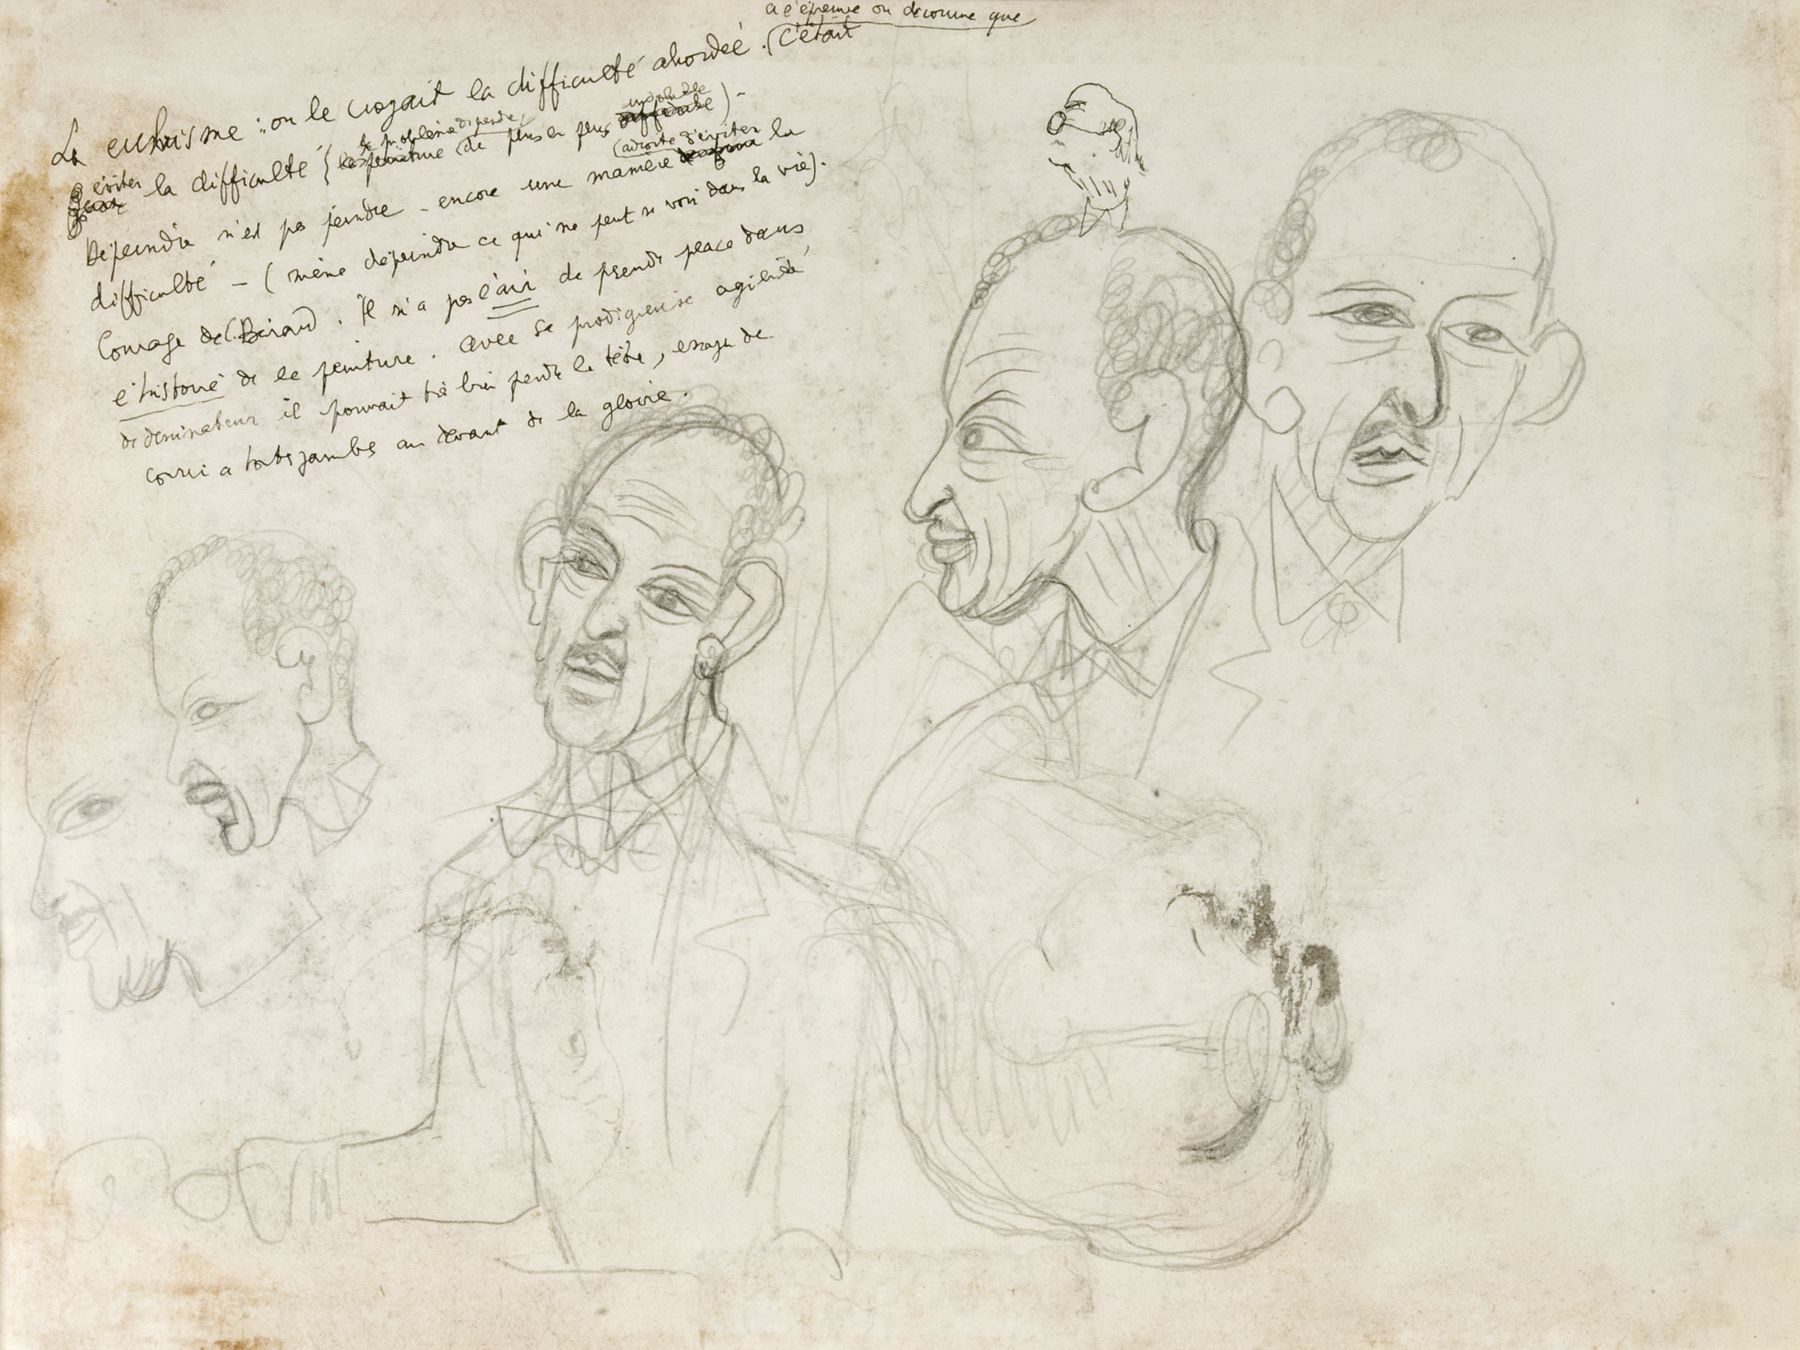 à l'épreuve on découvre que
Le cubisme : on le croyait la difficulté abordée. (c'était
éviter la difficulté le problème de plus en plus
Dépeindre n'est pas peindre - encore une manière adroite d'éviter la
difficulté - (même dépeindre ce qui ne peut se voir dans la vie).
Courage de C. Bérard. Il n'a pas l'air de prendre place dans
l'histoire de la peinture. Avec sa prodigieuse agilité
de dessinateur il pourrait très bien perdre la tête, essayer de
courir à toutes jambes au devant de la gloire.